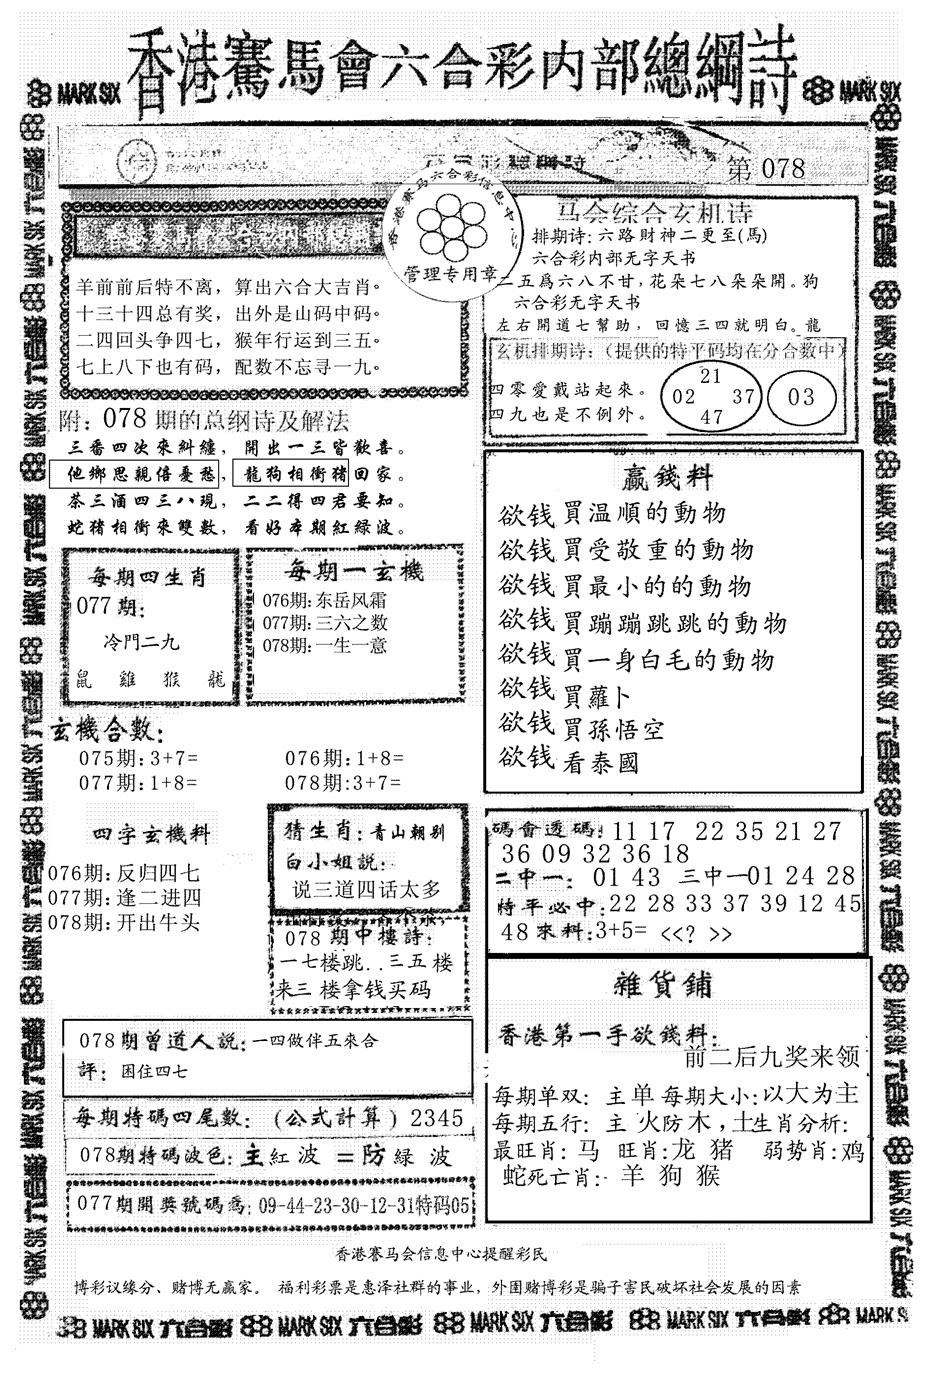 香港賽馬會六合彩内部總綱詩
MARK SIX
MARK SIX
第 078
香港赛马六合彩信息中心
管理专用章
羊前前后特不离，算出六合大吉肖。
十三十四总有奖，出外是山码中码。
二四回头争四七，猴年行运到三五。
七上八下也有码，配数不忘寻一九。
附：078 期的总纲诗及解法
三番四次來糾纏，開出一三皆歡喜。
他鄉思親倍憂愁，龍狗相衝猪回家。
茶三酒四三八現，二二得四君要知。
蛇猪相衝來雙數，看好本期紅緑波。
每期四生肖
077 期：
冷門二九
鼠 雞 猴 龍
每期一玄機
076期：东岳风霜
077期：三六之数
078期：一生一意
玄機合數：
075期：3+7= 076期：1+8=
077期：1+8= 078期：3+7=
四字玄機料
076期：反归四七
077期：逢二进四
078期：开出牛头
猜生肖：青山朝别
白小姐説：
说三道四话太多
078 期中樓詩：
一七楼跳..三五楼
来三楼拿钱买码
078期曾道人説：一四做伴五來合
評：困住四七
每期特碼四尾數：（公式計算）2345
078期特碼波色：主紅波 =防緑 波
077期開獎號碼爲：09-44-23-30-12-31特码05
马会综合玄机诗
排期诗：六路財神二更至(馬)
六合彩内部无字天书
二五爲六八不甘，花朵七八朵朵開。狗
六合彩无字天书
左右開道七幫助，回憶三四就明白。龍
玄机排期诗：（提供的特平码均在分合数中）
四零愛戴站起來。
四九也是不例外。
21
02 37
47
03
贏錢料
欲钱買温順的動物
欲钱買受敬重的動物
欲钱買最小的的動物
欲钱買蹦蹦跳跳的動物
欲钱買一身白毛的動物
欲钱買蘿卜
欲钱買孫悟空
欲钱看泰國
碼會透碼：11 17 22 35 21 27
36 09 32 36 18
二中一：01 43 三中一01 24 28
特平必中：22 28 33 37 39 12 45
48 來料：3+5= <<? >>
雜貨鋪
香港第一手欲錢料：
前二后九奖来领
每期单双：主单 每期大小：以大为主
每期五行：主 火防木，土生肖分析：
最旺肖：马 旺肖：龙 猪 弱势肖：鸡
蛇死亡肖：羊 狗 猴
香港赛马会信息中心提醒彩民
博彩议缘分、赌博无赢家。 福利彩票是惠泽社群的事业，外围赌博彩是骗子害民破坏社会发展的因素
MARK SIX 六合彩 MARK SIX 六合彩 MARK SIX 六合彩 MARK SIX 六合彩 MARK SIX